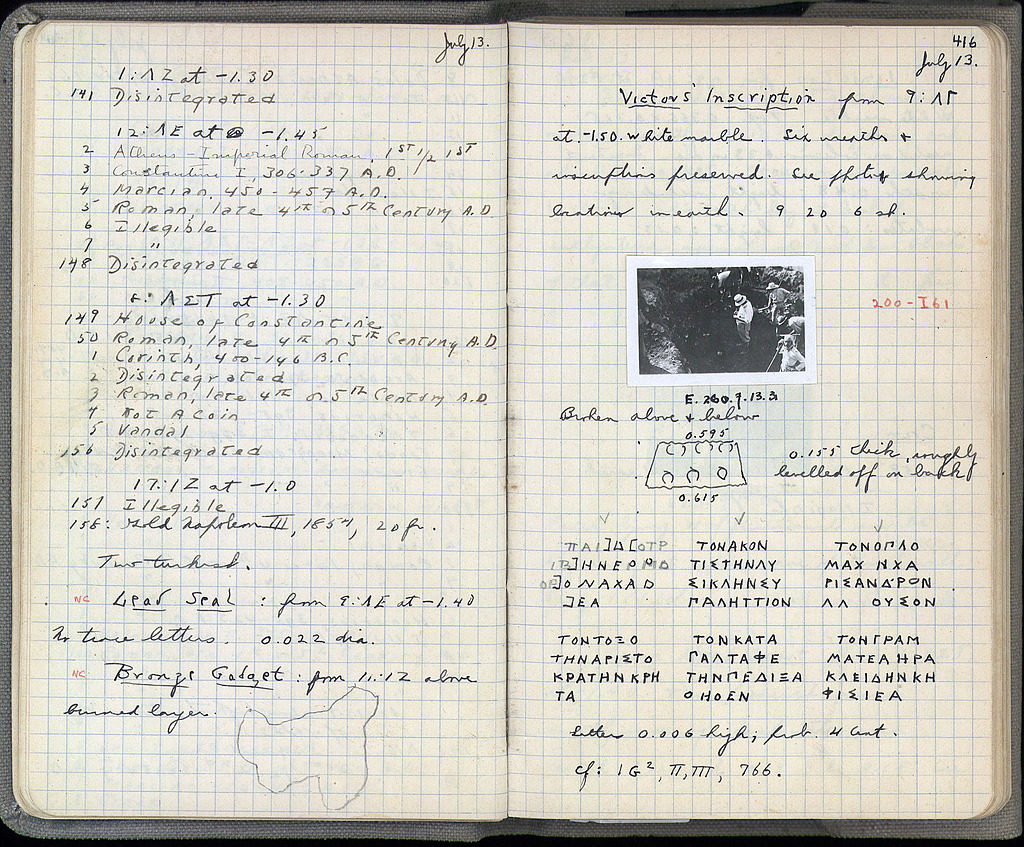 July 13.
1:ΛΖ at -1.30
141 Disintegrated
12:ΛΕ at -1.45
2 Athens - Imperial Roman, 1ST 1/2 1ST
3 Constantine I, 306-337 A.D.
4 Marcian, 450-457 A.D.
5 Roman, late 4th or 5th Century A.D.
6 Illegible
7 "
148 Disintegrated
ΛΣΤ at -1.30
149 House of Constantine
50 Roman, late 4th or 5th Century A.D.
1 Corinth, 400-146 B.C.
2 Disintegrated
3 Roman, late 4th or 5th Century A.D.
4 Not A Coin
5 Vandal
156 Disintegrated
17:ΙΖ at -1.0
157 Illegible
158: Gold Napoleon III, 1854, 20 fr.
Two turkish.
NC Lead Seal : from 9:ΛΕ at -1.40
No trace letters. 0.022 dia.
NC Bronze Gadget : from 11:ΙΖ above
burned layer.
416
July 13.
Victors' Inscription from 9:ΛΓ
at -1.50. White marble. Six wreaths +
inscriptions preserved. See photo showing
location in earth. 9 20 6 sh.
200-I61
E.260.9.13.3
Broken above + below
0.595
0.155 thick, roughly
levelled off on back
0.615
ΠΑΙ]Δ[ΟΤΡ ΤΟΝΑΚΟΝ ΤΟΝΟΠΛΟ
ΙΒ]ΗΝΕΡΜΟ ΤΙΣΤΗΝΛΥ ΜΑΧ ΝΧΑ
ΟΣ]ΟΝΑΧΑΟ ΣΙΚΛΗΝΣΥ ΡΙΣΑΝΔΡΟΝ
]ΕΑ ΠΑΛΗΤΤΙΟΝ ΛΛ ΟΥΣΟΝ
ΤΟΝΤΟΞΟ ΤΟΝΚΑΤΑ ΤΟΝΓΡΑΜ
ΤΗΝΑΡΙΣΤΟ ΠΑΛΤΑΦΕ ΜΑΤΕΑΗΡΑ
ΚΡΑΤΗΝΚΡΗ ΤΗΝΠΕΔΙΞΑ ΚΛΕΙΔΗΝΚΗ
ΤΑ ΟΗΘΕΝ ΦΙΣΙΕΑ
Letters 0.006 high; prob. 4 Cent.
cf: IG², II, III, 766.